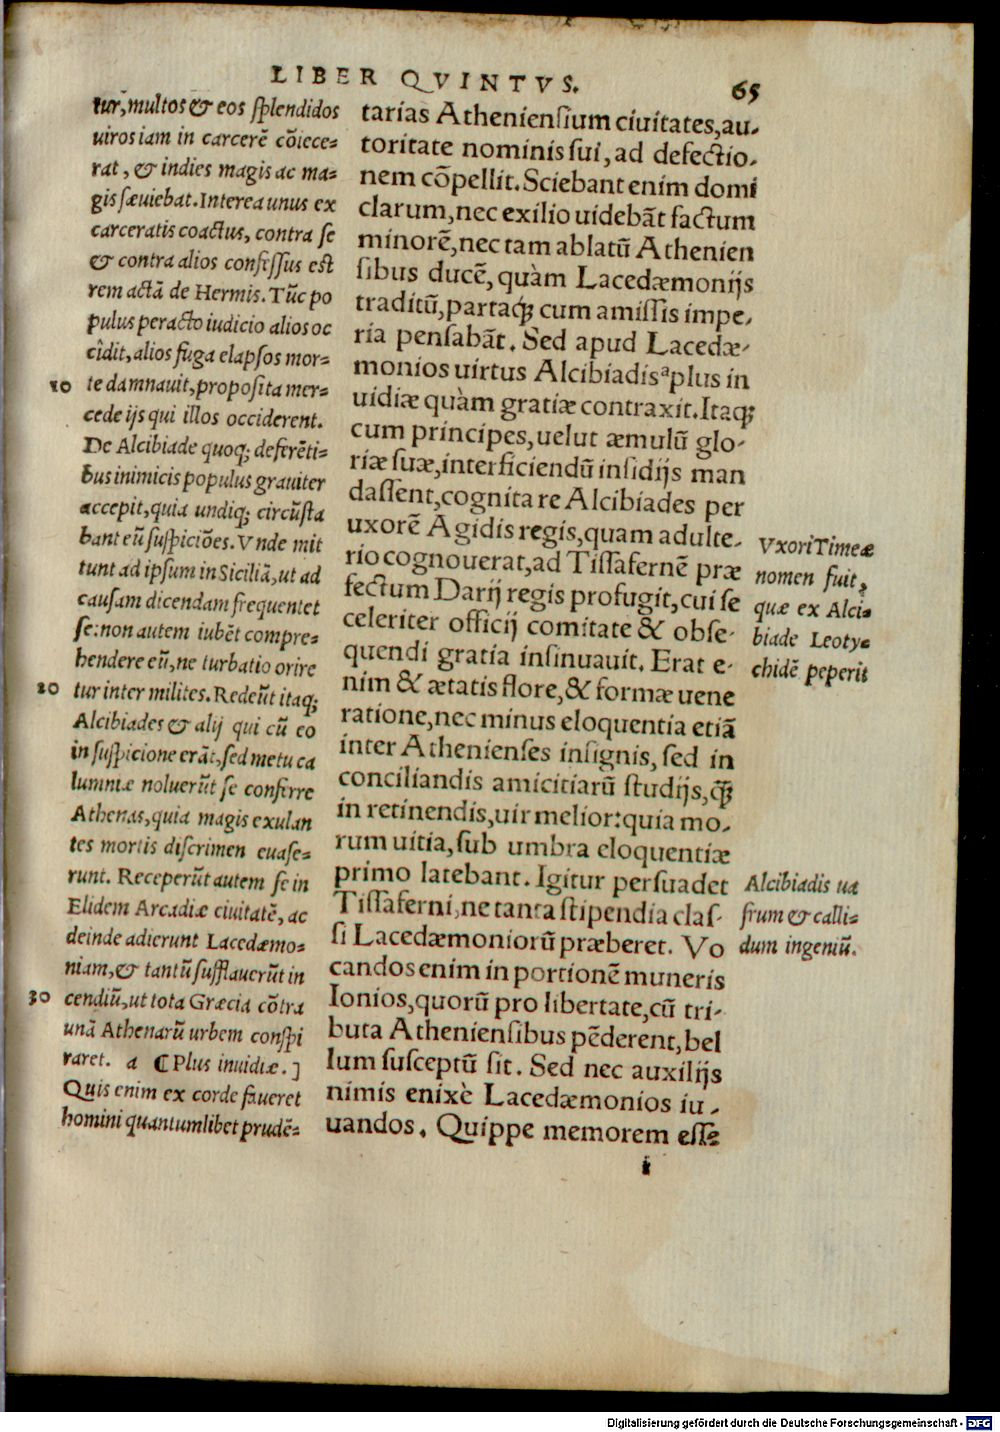 LIBER QVINTVS. 65
tur, multos & eos splendidos
uiros iam in carcerē cōiece-
rat, & indies magis ac ma-
gis sæuiebat. Interea unus ex
carceratis coactus, contra se
& contra alios confessus est
rem actā de Hermis. Tūc po
pulus peracto iudicio alios oc
cidit, alios fuga elapsos mor-
10 te damnauit, proposita mer-
cede ijs qui illos occiderent.
De Alcibiade quoq; deferēti-
bus inimicis populus grauiter
accepit, quia undiq; circūsta
bant eū suspiciōes. Vnde mit
tunt ad ipsum in Siciliā, ut ad
causam dicendam frequentet
se: non autem iubēt compre-
hendere eū, ne turbatio orire
20 tur inter milites. Redeūt itaq;
Alcibiades & alij qui cū eo
in suspicione erāt, sed metu ca
lumniæ noluerūt se conferre
Athenas, quia magis exulan
tes mortis discrimen euase-
runt. Receperūt autem se in
Elidem Arcadiæ ciuitatē, ac
deinde adierunt Lacedæmo-
niam, & tantū sufflauerūt in
30 cendiū, ut tota Græcia cōtra
unā Athenarū urbem conspi
raret. a ¶ Plus inuidiæ.]
Quis enim ex corde faueret
homini quantumlibet prudē-
tarias Atheniensium ciuitates, au-
toritate nominis sui, ad defectio-
nem cōpellit. Sciebant enim domi
clarum, nec exilio uidebāt factum
minorē, nec tam ablatū Athenien
sibus ducē, quàm Lacedæmonijs
traditū, partaq́; cum amissis impe-
ria pensabāt. Sed apud Lacedæ-
monios uirtus Alcibiadis ᵃ plus in
uidiæ quàm gratiæ contraxit. Itaq;
cum principes, uelut æmulū glo-
riæ suæ, interficiendū insidijs man
dassent, cognita re Alcibiades per
uxorē Agidis regis, quam adulte-
rio cognouerat, ad Tissafernē præ
fectum Darij regis profugit, cui se
celeriter officij comitate & obse-
quendi gratia insinuauit. Erat e-
nim & ætatis flore, & formæ uene
ratione, nec minus eloquentia etiā
inter Athenienses insignis, sed in
conciliandis amicitiarū studijs, q̄̃
in retinendis, uir melior: quia mo-
rum uitia, sub umbra eloquentiæ
primo latebant. Igitur persuadet
Tissaferni, ne tanta stipendia clas-
si Lacedæmoniorū præberet. Vo
candos enim in portionē muneris
Ionios, quorū pro libertate, cū tri-
buta Atheniensibus pēderent, bel
lum susceptū sit. Sed nec auxilijs
nimis enixè Lacedæmonios iu-
uandos. Quippe memorem esse
i
Vxori Timeæ
nomen fuit,
quæ ex Alci-
biade Leoty-
chidē peperit
Alcibiadis ua
frum & calli-
dum ingeniū.
Digitalisierung gefördert durch die Deutsche Forschungsgemeinschaft - DFG